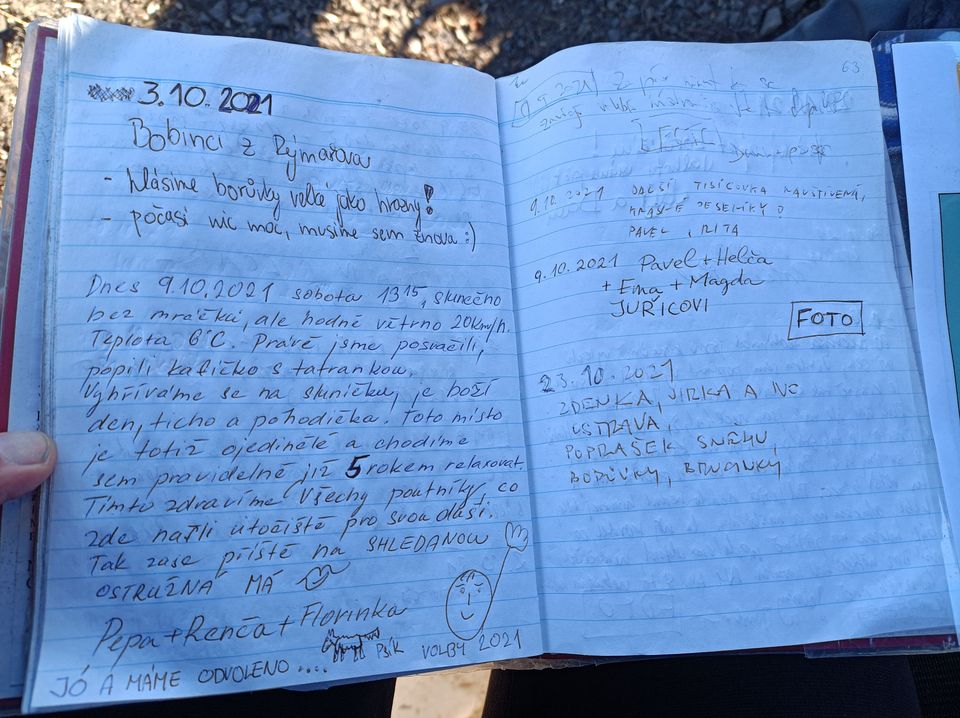 3.10. 2021
Bobinci z Rýmařova
- hlásíme borůvky velké jako hrozny!
- počasí nic moc, musíme sem znova :)
Dnes 9.10.2021 sobota 13 15, slunečno
bez mráčků, ale hodně větrno 20km/h.
Teplota 6°C. Právě jsme posvačili,
popili kafíčko s tatrankou.
Vyhříváme se na sluníčku, je boží
den, ticho a pohodička. Toto místo
je totiž ojedinělé a chodíme
sem pravidelně již 5 rokem relaxovat.
Tímto zdravíme všechny poutníky, co
zde našli útočiště pro svou duši.
Tak zase příště na SHLEDANOU
OSTRUŽNÁ MÁ
Pepa + Renča + Florinka
Psík VOLBY 2021
JÓ A MÁME ODVOLENO....
63
9. 2021
9.10. 2021 DALŠÍ TISÍCOVKA NAVŠTÍVENÁ,
KRÁSNÉ JESENÍKY
PAVEL, RITA
9.10.2021 Pavel + Helča
+ Ema + Magda
JUŘICOVI
FOTO
23.10.2021
ZDENKA, JIRKA A
OSTRAVA,
POPRAŠEK SNĚHU,
BORŮVKY, BRUSINKY